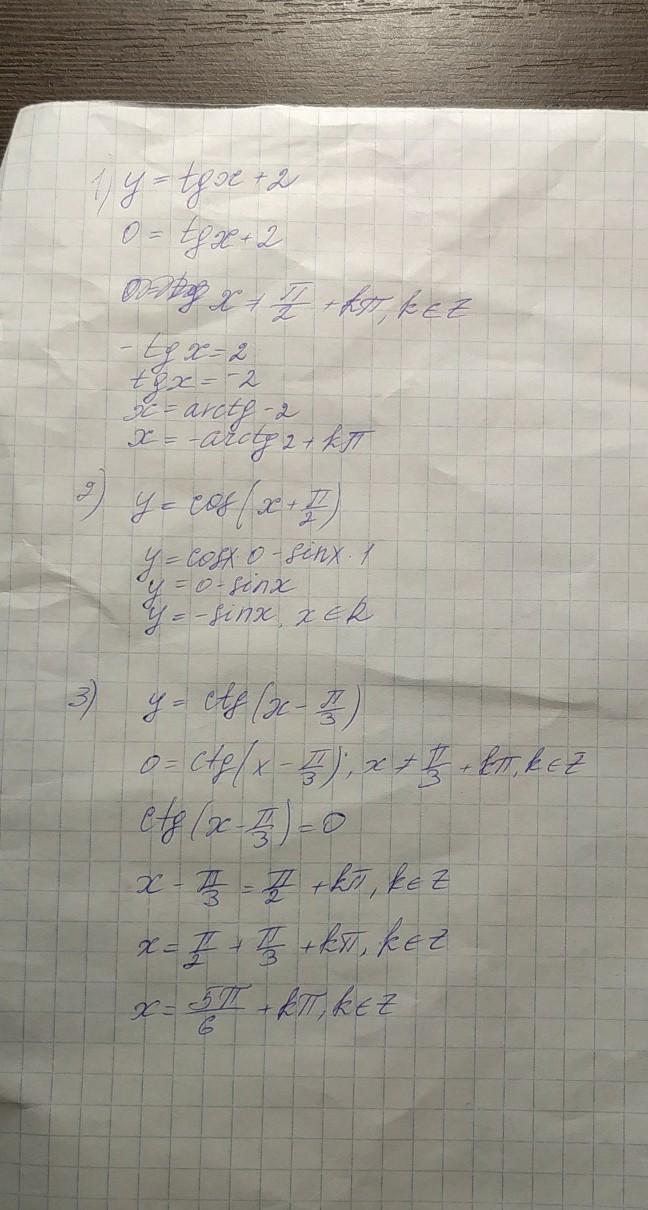 1) y = tgx + 2
0 = tgx + 2
x ≠ π/2 + kπ, k ∈ Z
-tgx = 2
tgx = -2
x = arctg -2
x = -arctg 2 + kπ
2) y = cos(x + π/2)
y = cosx 0 - sinx · 1
y = 0 - sinx
y = -sinx, x ∈ R
3) y = ctg(x - π/3)
0 = ctg(x - π/3), x ≠ π/3 + kπ, k ∈ Z
ctg(x - π/3) = 0
x - π/3 = π/2 + kπ, k ∈ Z
x = π/2 + π/3 + kπ, k ∈ Z
x = 5π/6 + kπ, k ∈ Z